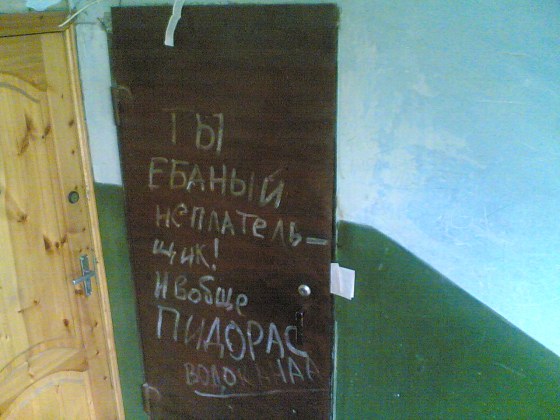 ТЫ
ЕБАНЫЙ
НЕПЛАТЕЛЬ-
ЩИК!
И вобще
ПИДОРАС
ВОДОКАНАЛ